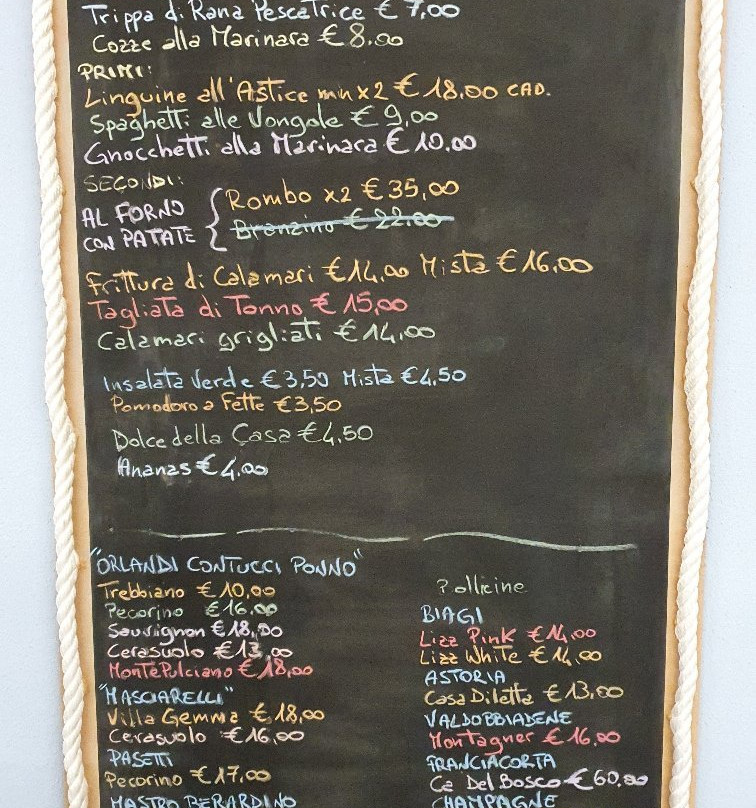 Trippa di Rana Pescatrice € 7,00
Cozze alla Marinara € 8,00
PRIMI:
Linguine all'Astice min x 2 € 18,00 CAD.
Spaghetti alle Vongole € 9,00
Gnocchetti alla Marinara € 10,00
SECONDI:
AL FORNO
CON PATATE
Rombo x2 € 35,00
Branzino € 22,00
Frittura di Calamari € 14,00 Mista € 16,00
Tagliata di Tonno € 15,00
Calamari grigliati € 14,00
Insalata Verde € 3,50 Mista € 4,50
Pomodoro a Fette € 3,50
Dolce della Casa € 4,50
Ananas € 4,00
"ORLANDI CONTUCCI PONNO"
Trebbiano € 10,00
Pecorino € 16,00
Sauvignon € 18,00
Cerasuolo € 13,00
MontePulciano € 18,00
"MASCIARELLI"
Villa Gemma € 18,00
Cerasuolo € 16,00
PASETTI
Pecorino € 17,00
MASTRO BERARDINO
Bollicine
BIAGI
Lizz Pink € 14,00
Lizz White € 14,00
ASTORIA
Casa Diletta € 13,00
VALDOBBIADENE
Montagner € 16,00
FRANCIACORTA
Ca Del Bosco € 60,00
CHAMPAGNE